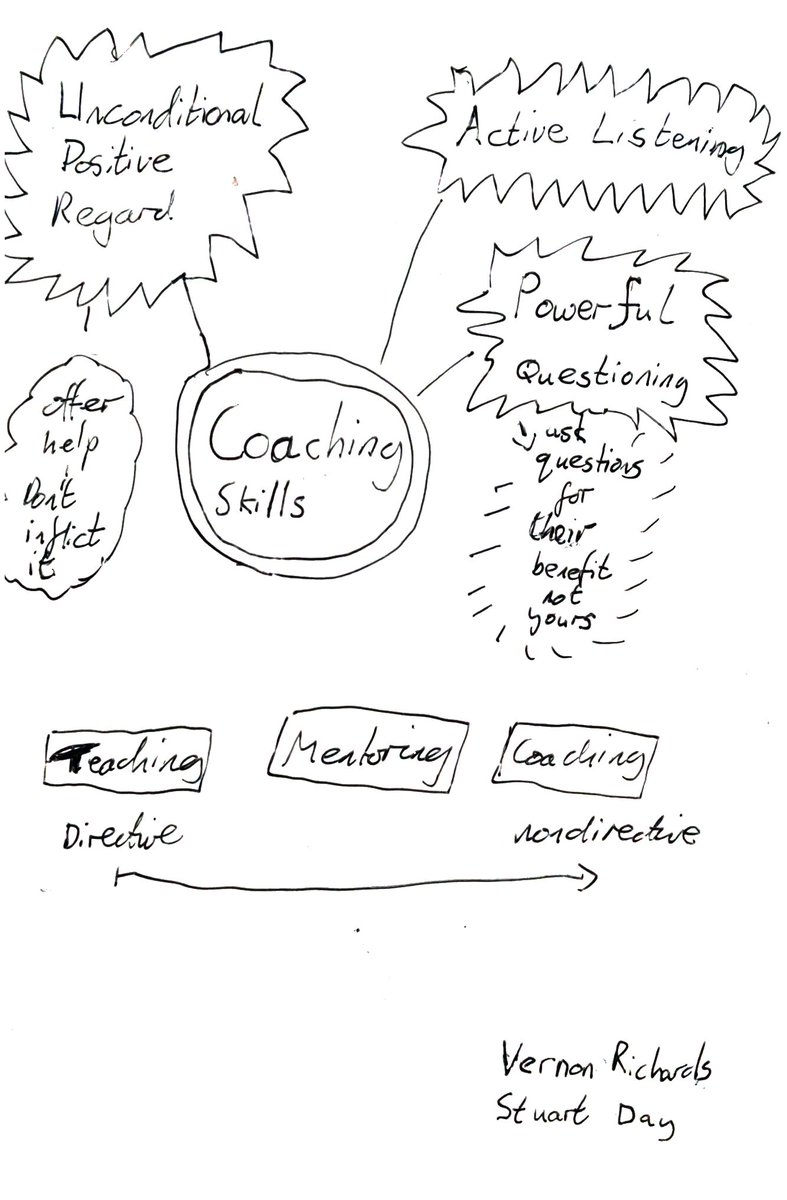 Unconditional
Positive
Regard
Active Listening
Powerful
Questioning
Coaching
Skills
offer
help
Don't
inflict
it
ask
questions
for
their
benefit
not
yours
Teaching
Mentoring
Coaching
Directive
nondirective
Vernon Richards
Stuart Day